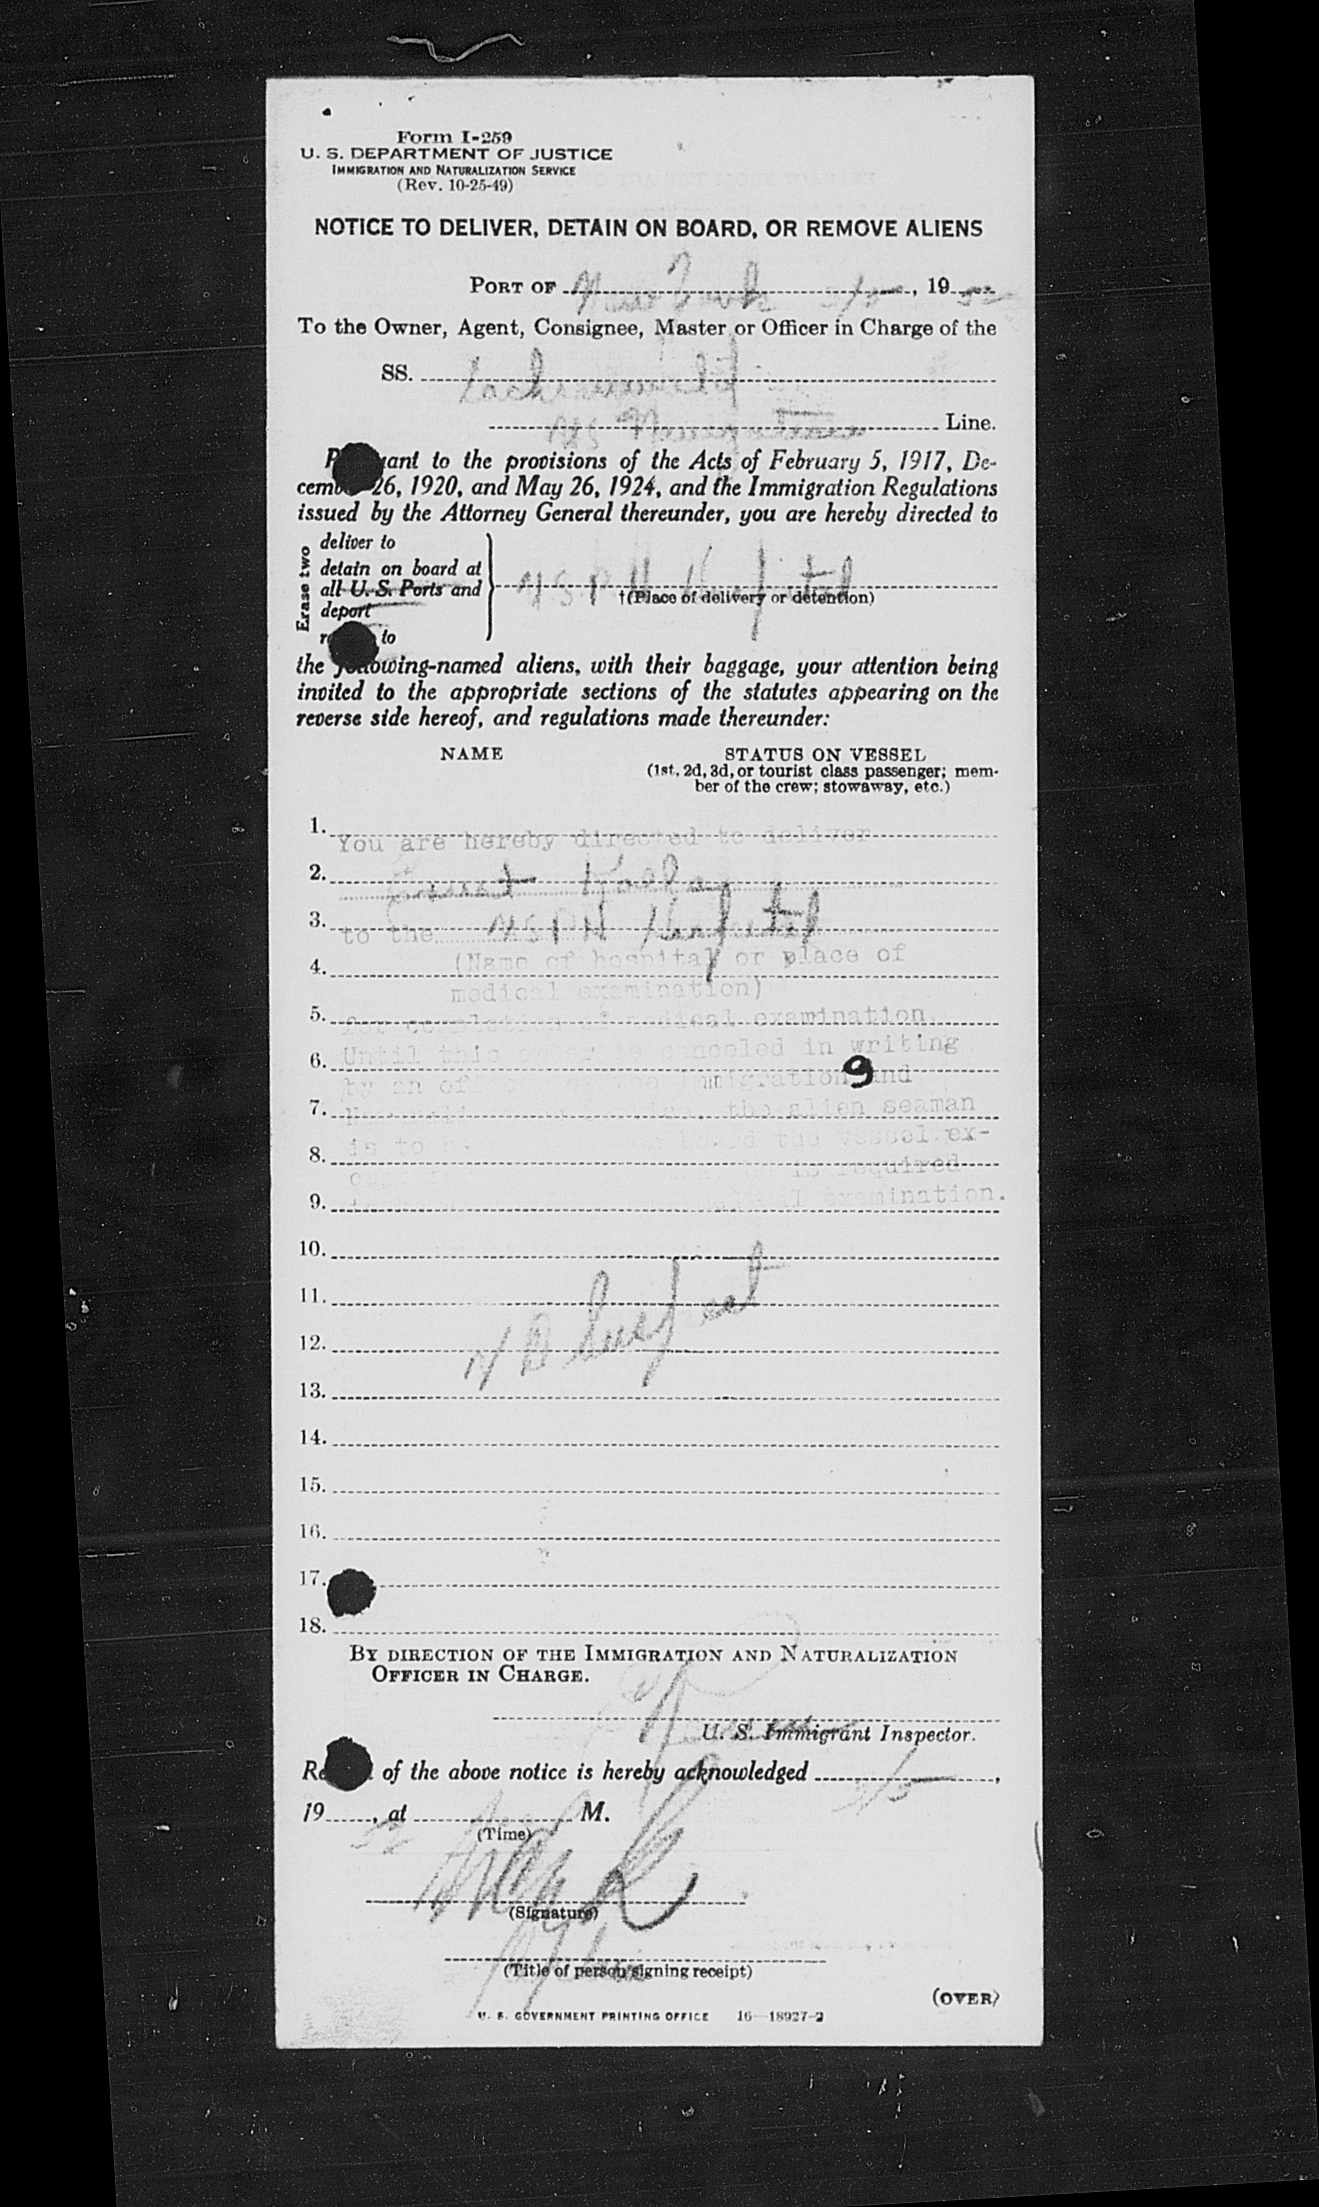 Form I-259
U. S. DEPARTMENT OF JUSTICE
IMMIGRATION AND NATURALIZATION SERVICE
(Rev. 10-25-49)
NOTICE TO DELIVER, DETAIN ON BOARD, OR REMOVE ALIENS
PORT OF New York 19 52
To the Owner, Agent, Consignee, Master or Officer in Charge of the
SS.
Line.
to the provisions of the Acts of February 5, 1917, De-
26, 1920, and May 26, 1924, and the Immigration Regulations
issued by the Attorney General thereunder, you are hereby directed to
Erase two
deliver to
detain on board at
all U. S. Ports and
deport
to
U S P H Hospital
†(Place of delivery or detention)
the following-named aliens, with their baggage, your attention being
invited to the appropriate sections of the statutes appearing on the
reverse side hereof, and regulations made thereunder:
NAME STATUS ON VESSEL
(1st, 2d, 3d, or tourist class passenger; mem-
ber of the crew; stowaway, etc.)
1. You are hereby directed to deliver
2. Ernest
3. to the U S P H Hospital
4. (Name of hospital or place of
medical examination)
5. for completion of medical examination.
6. Until this order is canceled in writing
by an immigration and 9
7. the alien seaman
is to the vessel ex-
8. is required
9. examination.
10.
11.
12. V D Suspect
13.
14.
15.
16.
17.
18.
BY DIRECTION OF THE IMMIGRATION AND NATURALIZATION
OFFICER IN CHARGE.
U. S. Immigrant Inspector.
of the above notice is hereby acknowledged ,
19 52, at M.
(Time)
(Signature)
(Title of person signing receipt)
(OVER)
U. S. GOVERNMENT PRINTING OFFICE 16—18927-2